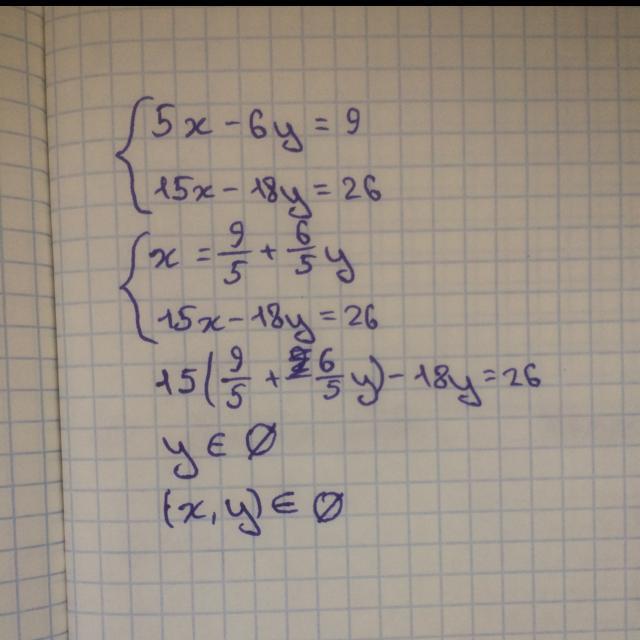 5x - 6y = 9
15x - 18y = 26
x = 9/5 + 6/5 y
15x - 18y = 26
15(9/5 + 6/5 y) - 18y = 26
y ∈ ∅
(x, y) ∈ ∅